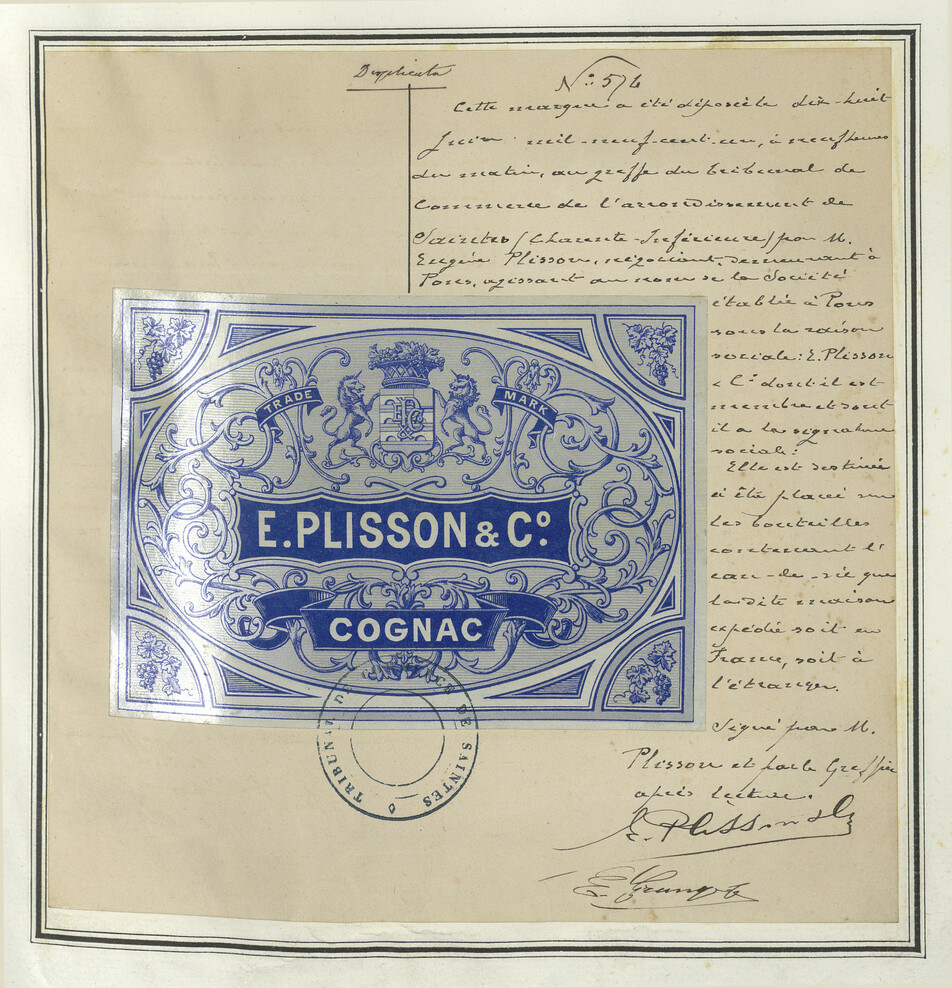 Duplicata
N° 574
Cette marque a été déposée le dix-huit
Juin mil-neuf-cent-un, à neuf heures
du matin, au greffe du tribunal de
Commerce de l'arrondissement de
Saintes (Charente-Inférieure) par M.
Eugène Plisson, négociant, demeurant à
Pons, agissant au nom de la Société
établie à Pons
sous la raison
sociale: E. Plisson
& Cie dont il est
membre et dont
il a la signature
sociale:
Elle est destinée
à être placée sur
les bouteilles
contenant l'
eau-de-vie que
la dite maison
expédie soit en
France, soit à
l'étranger.
Signé par M.
Plisson et par le Greffier
après lecture.
E. Plisson & Cie
TRADE MARK
E. PLISSON & Cº.
COGNAC
TRIBUNAL DE COMMERCE DE SAINTES